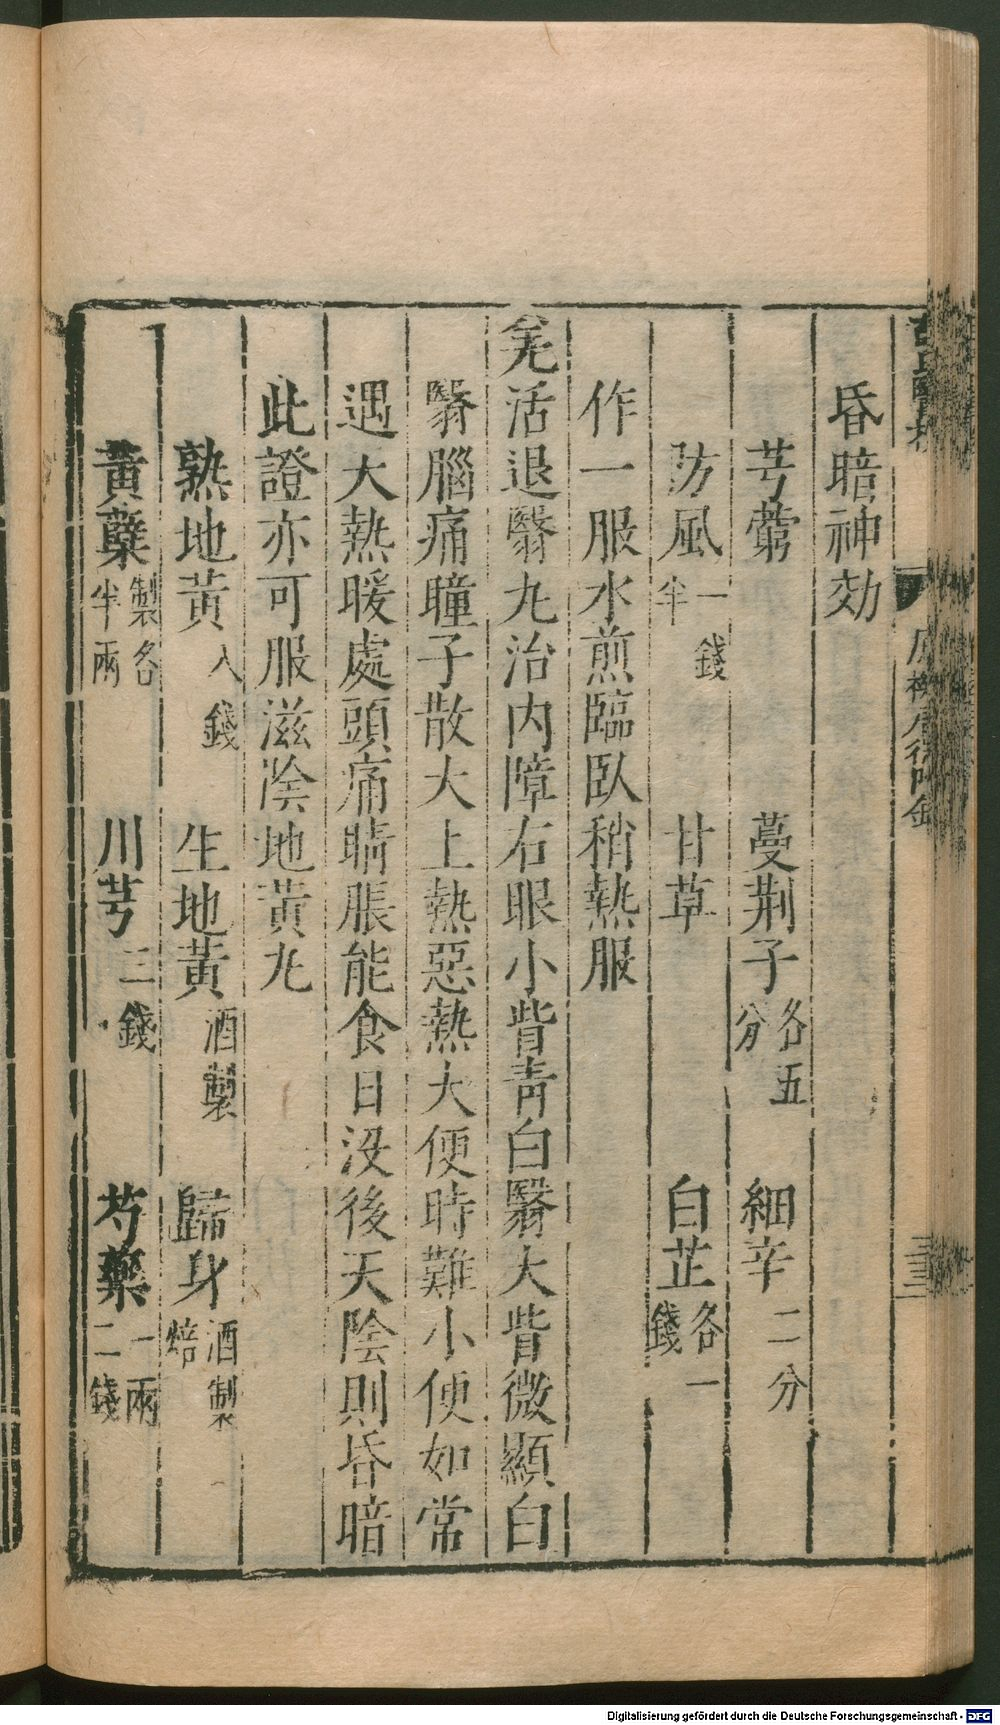 昏暗神効
芎藭　蔓荆子各五分　細辛二分
防風一錢半　甘草　白芷各一錢
作一服水煎臨臥稍熱服
羌活退翳丸治内障右眼小眥青白翳大眥微顯白
翳腦痛瞳子散大上熱惡熱大便時難小便如常
遇大熱暖處頭痛睛脹能食日没後天陰則昏暗
此證亦可服滋陰地黃丸
熟地黃八錢　生地黃酒製　歸身酒製焙
黃蘗製各半兩　川芎三錢　芍藥一兩二錢
Digitalisierung gefördert durch die Deutsche Forschungsgemeinschaft - DFG